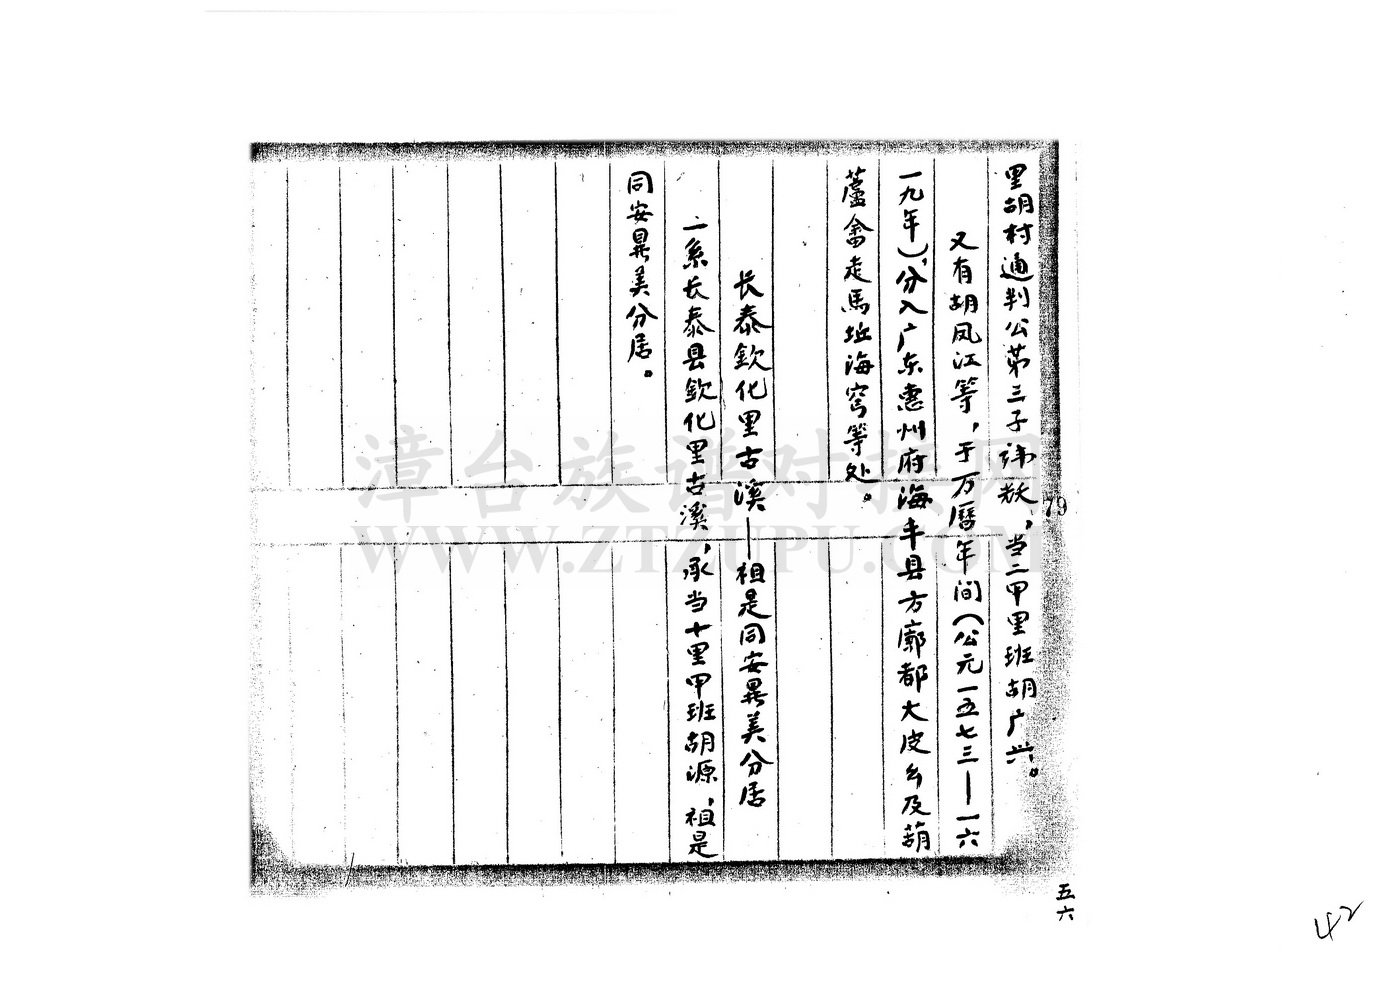 里胡村通判公第三子讳敖，当二甲里班胡广兴。
又有胡凤江等，于万曆年间（公元一五七三——一六
一九年），分入广东惠州府海丰县方廓都大皮乡及葫
蘆禽走馬坵海穹等处。
长泰欽化里古溪——祖是同安鼎美分居
一系长泰县欽化里古溪，承当十里甲班胡源，祖是
同安鼎美分居。
79
五六
42
漳台族谱对接网
WWW.ZTZUPU.COM